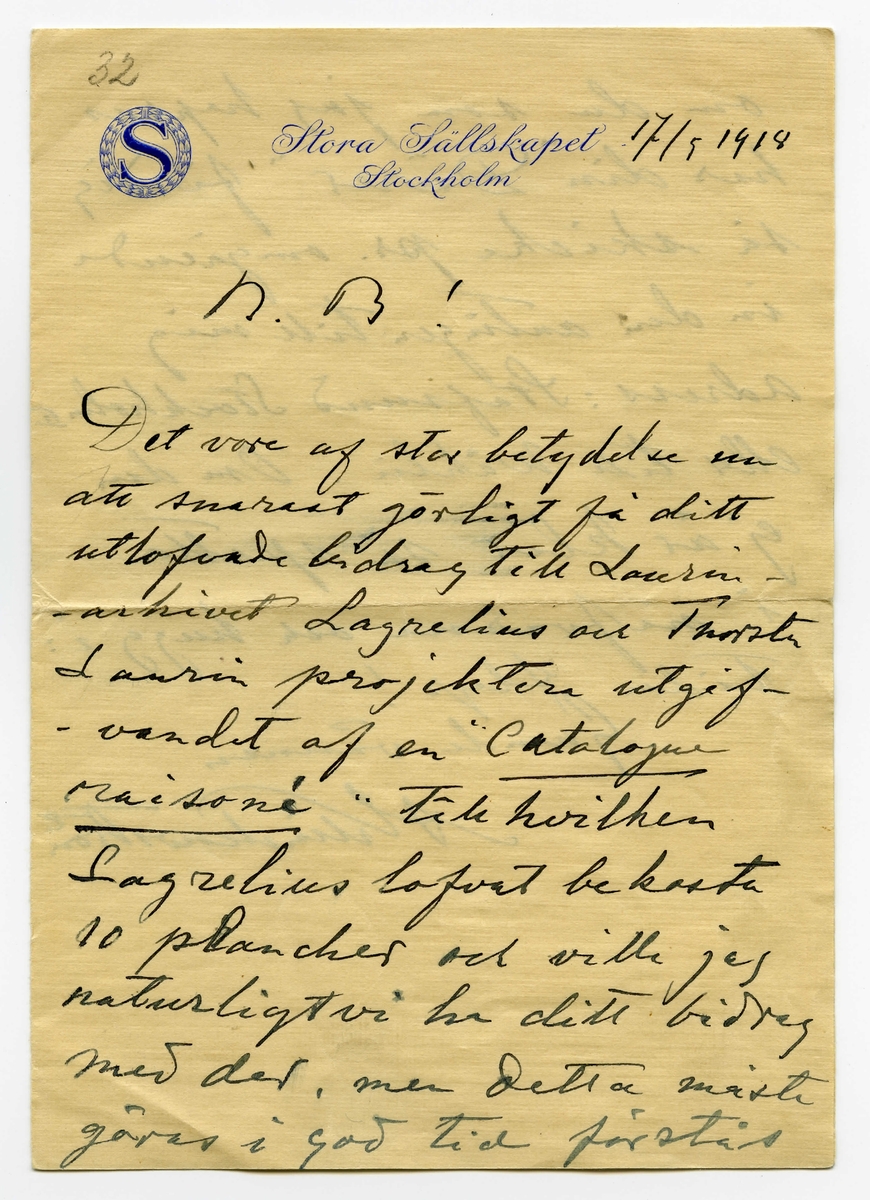 32
S
Stora Sällskapet 17/5 1918
Stockholm
N. B!
Det vore af stor betydelse nu
att snarast görligt få ditt
utlofvade bidrag till Laurin-
-arkivet Lagrelius och Thorsten
Laurin projektera utgif-
-vandet af en "Catalogue
raisoné" till hvilken
Lagrelius lofvat bekosta
10 plancher och ville jag
naturligtvi ha ditt bidrag
med der, men detta måste
göras i god tid förstås